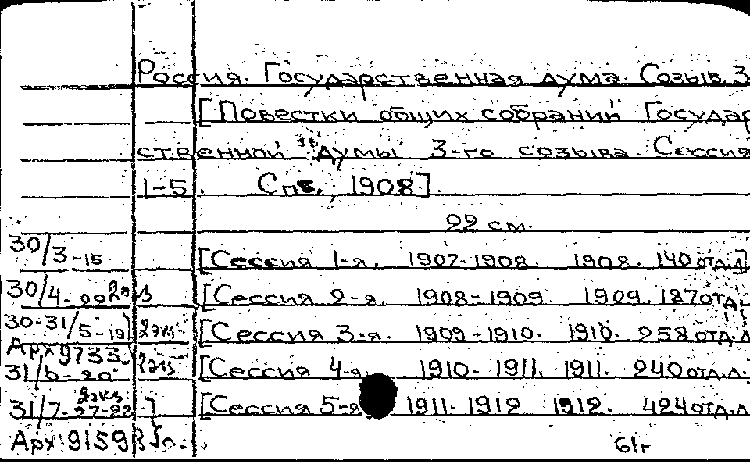 Россия. Государственная дума. Созыв 3
[Повестки общих собраний Государ
ственной Думы 3-го созыва. Сессия
1-5. Спб., 1908].
22 см.
30/3-15 [Сессия 1-я. 1907-1908. 1908. 140 отд.л
30/4- 2экз [Сессия 2-я. 1908-1909. 1909. 187 отд.
30-31/5-19 2экз. [Сессия 3-я. 1909-1910. 1910. 258 отд.л
Арх 9733
31/6-20 2экз [Сессия 4-я. 1910-1911. 1911. 240 отд.л.
31/7-27-22 2экз [Сессия 5-я 1911-1912 1912. 424 отд.л
Арх 9159 61г